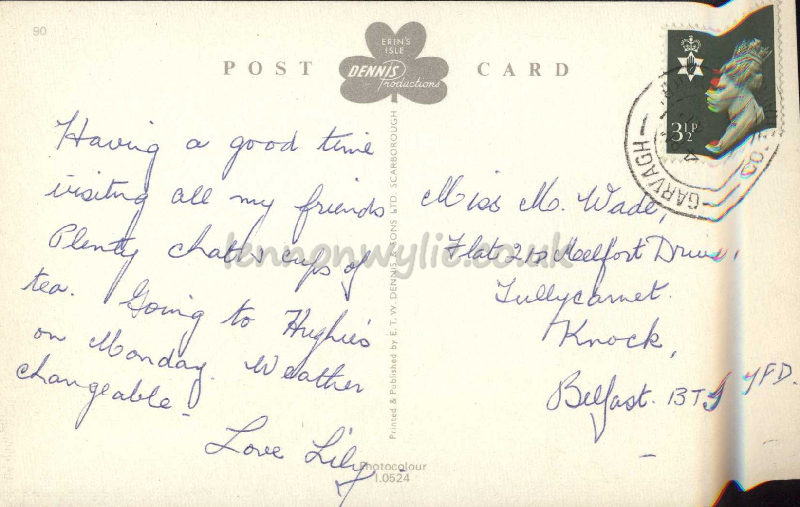 90
ERIN'S
ISLE
DENNIS
Productions
POST CARD
3½P
GARVAGH
CO.
Having a good time
visiting all my friends
Plenty chats cups of
tea. Going to Hughie's
on Monday. Weather
changeable -
Love Lily
Miss M. Wade,
Flat 212 Melfort Drive,
Tullycarnet.
Knock,
Belfast. BT5 7FD.
Printed & Published by E. T. W. DENNIS & SONS LTD. SCARBOROUGH
lennonwylie.co.uk
Photocolour
1.0524